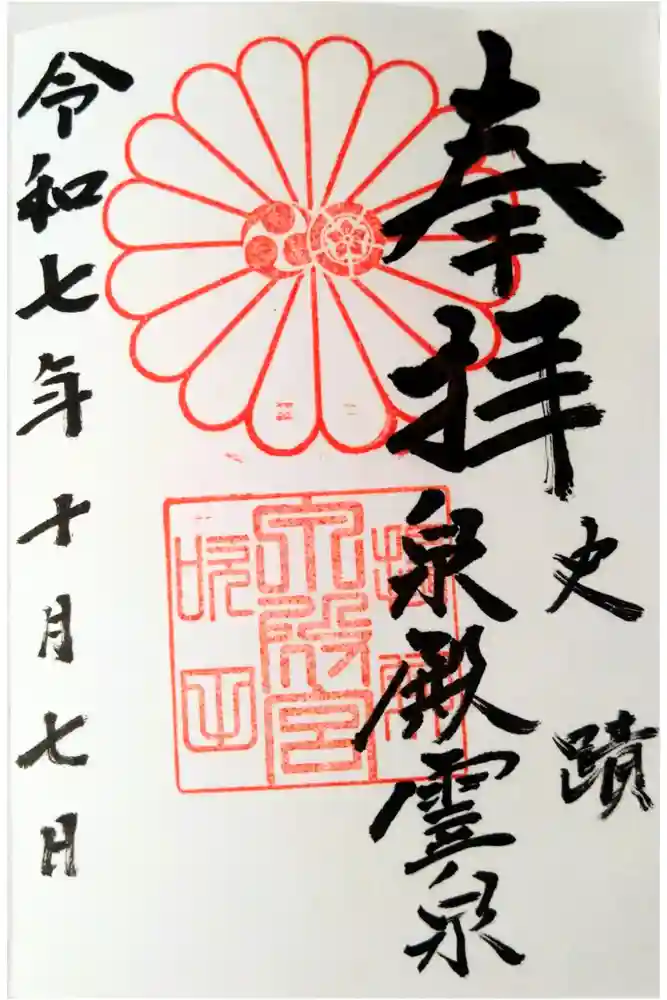 奉拝
史蹟
泉殿霊泉
令和七年十月七日